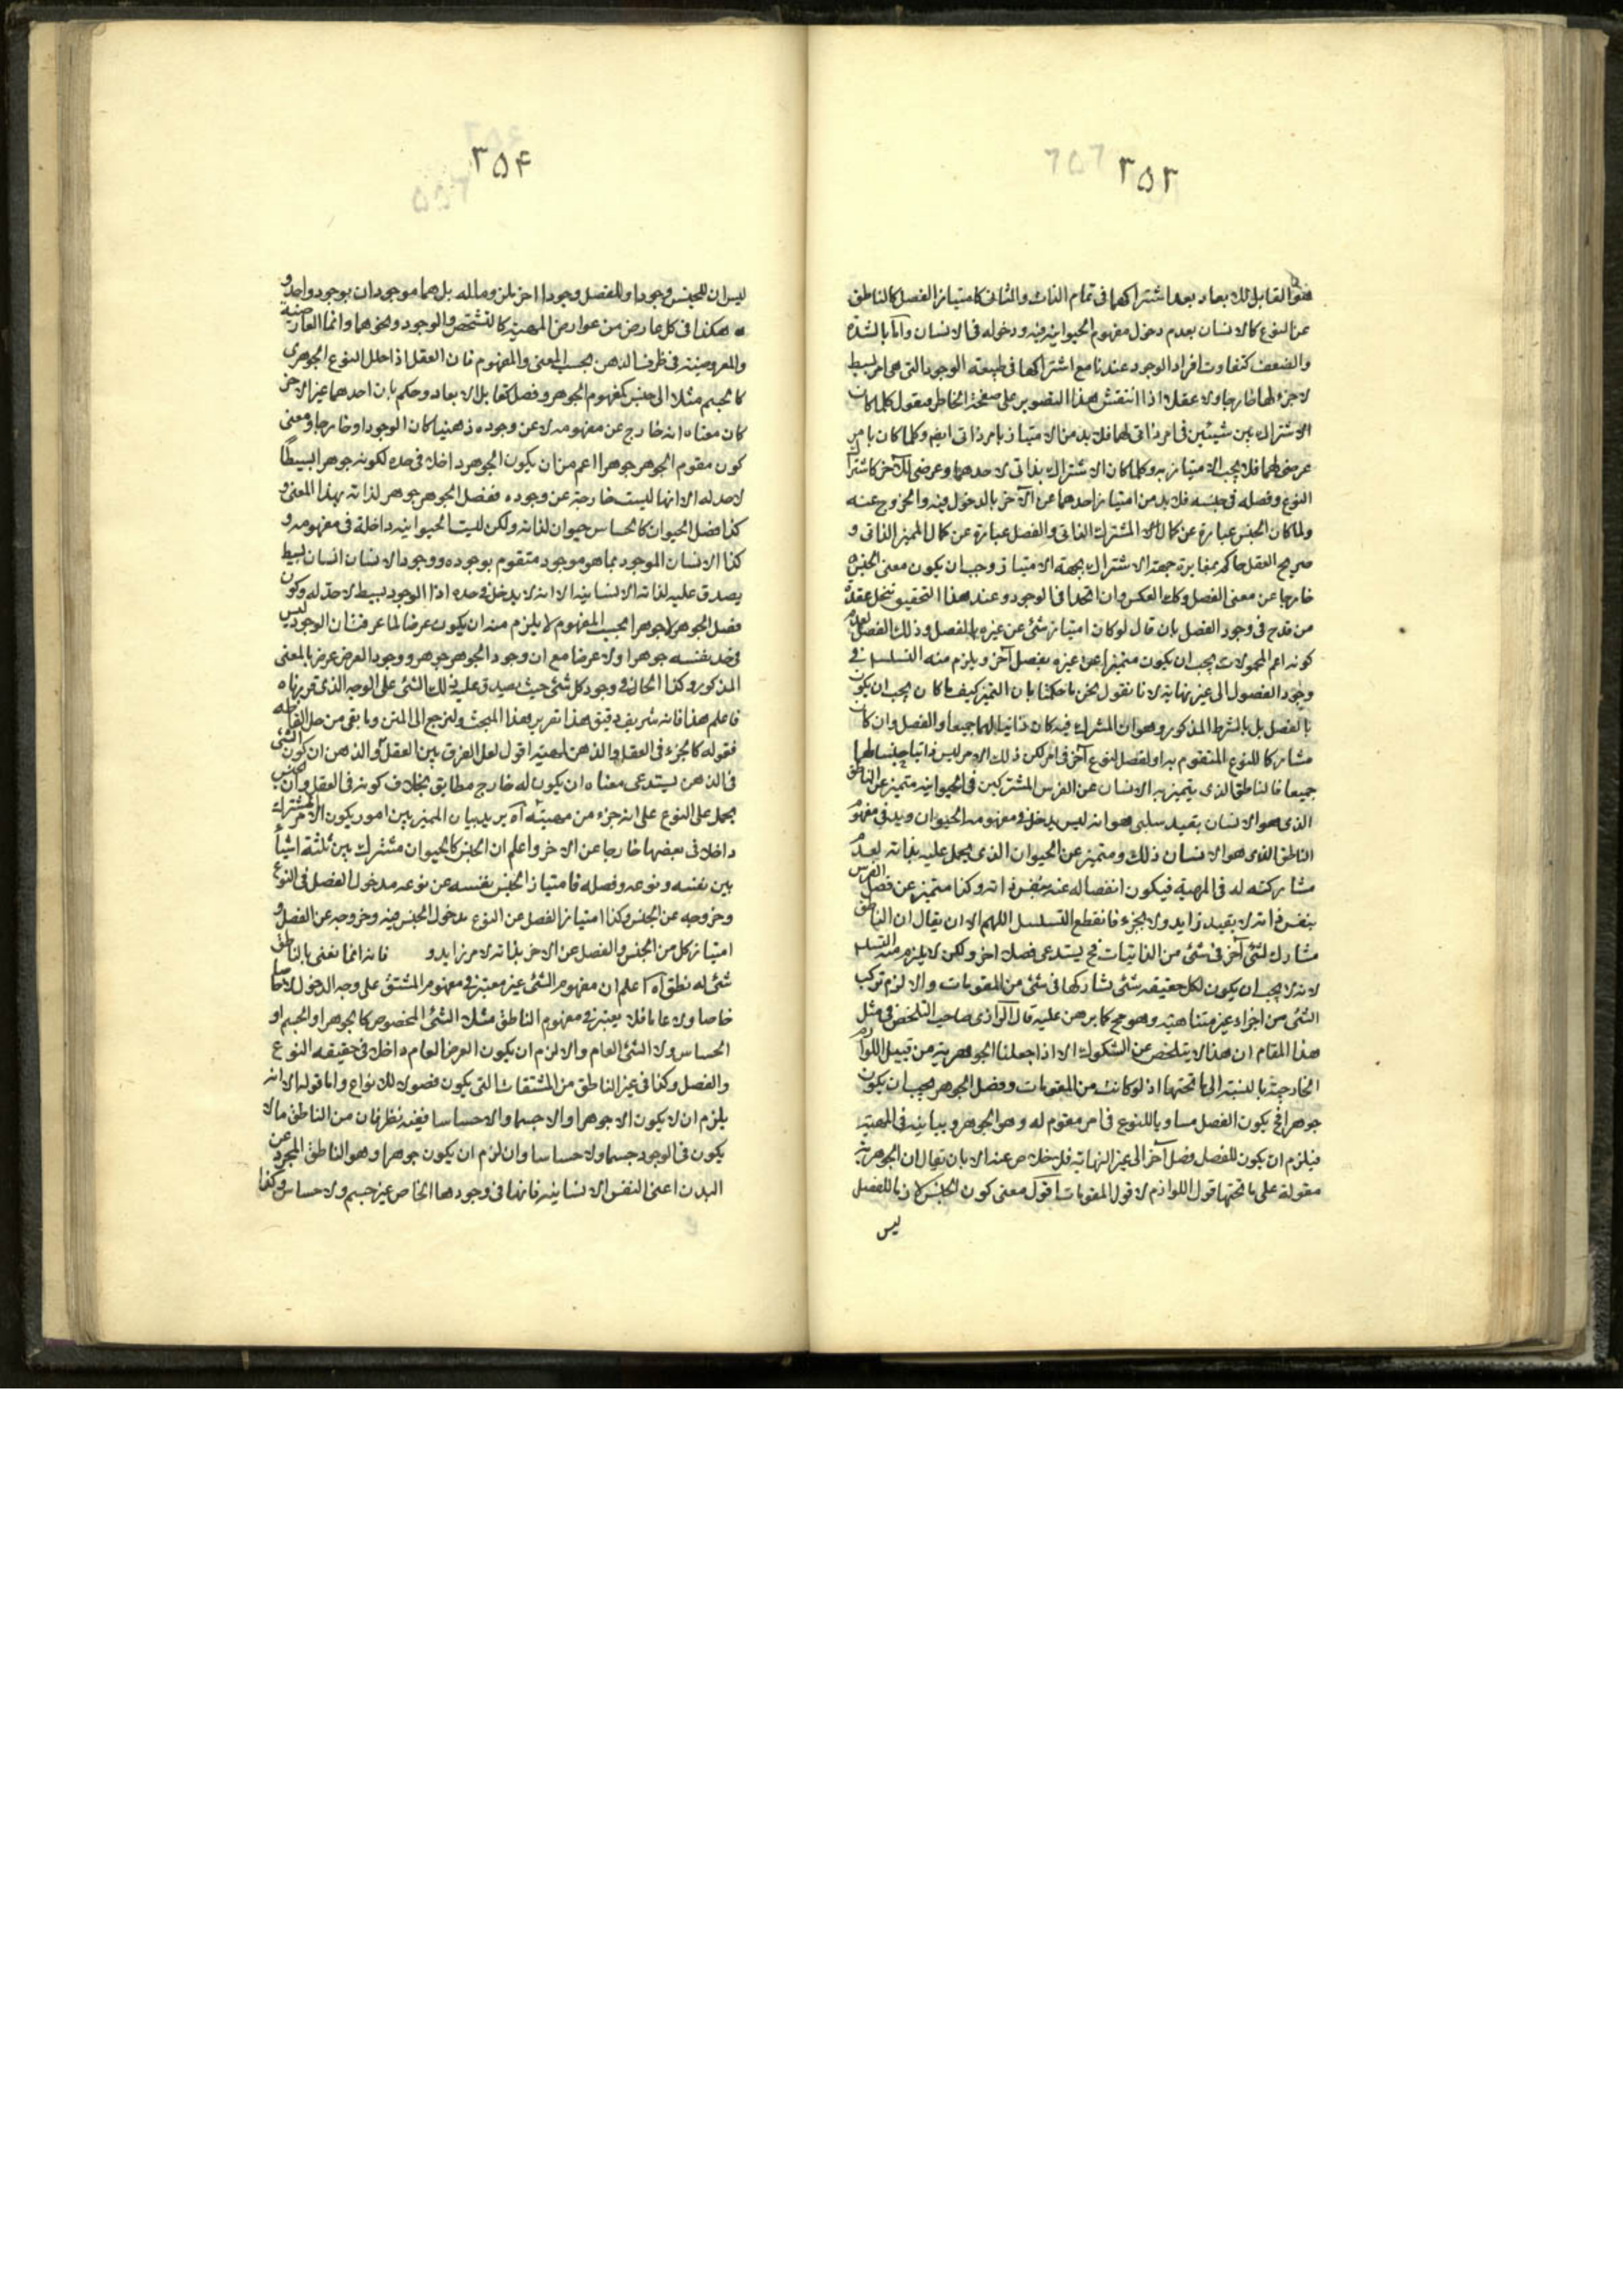 ۲۵۳
القابل للابعاد بعد اشتراكهما فى تمام الذات والثانى كامتياز الفصل كالناطق
عن النوع كالانسان بعدم دخول مفهوم الحيوانيه فيه ودخوله فى الانسان واما بالشدة
والضعف كتفاوت افراد الوجود عندنا مع اشتراكها فى طبيعة الوجود التى هى امر بسيط
لا جزء لها خارجا ولا عقلا اذا انتقش هذا التصوير على صفحة الخاطر فنقول كلما كان
الاشتراك بين شيئين فى امر ذاتى لهما فلا بد من الامتياز بامر ذاتى ايضا وكلما كان بامر
عرضى لهما فلا يجب الامتياز به وكلما كان الاشتراك بذاتى لاحدهما وعرضى للآخر كاشتراك
النوع وفصله فى جنسه فلا بد من امتياز احدهما عن الآخر بالدخول فيه والخروج عنه
ولما كان الجنس عبارة عن كمال المشترك الذاتى والفصل عبارة عن كمال المميز الذاتى و
صريح العقل حاكم بمغايرة جهة الاشتراك بجهة الامتياز وجب ان يكون معنى الجنس
خارجا عن معنى الفصل وكذا العكس وان اتحدا فى الوجود وعند هذا التحقيق تنحل عقدة
من قدح فى وجود الفصل بان قال لو كان امتياز شئ عن غيره بالفصل وذلك الفصل
كونه اعم المحمولات يجب ان يكون متميزا عن غيره بفصل آخر ويلزم منه التسلسل فى
وجود الفصول الى غير نهاية لانا نقول نحن ما حكمنا بان التميز كيف ما كان يجب ان يكون
بالفصل بل بالشرط المذكور وهو ان المشترك فيه كان ذاتيا لهما جميعا والفصل وان كان
مشاركا للنوع المتقوم به او لفصل لنوع آخر فى امر لكن ذلك الامر ليس ذاتيا جنسا لهما
جميعا فالناطق الذى يتميز به الانسان عن الفرس المشتركين فى الحيوانيه متميز عن الناطق
الذى هو الانسان بقيد سلبى هو انه ليس يدخل فى مفهومه الحيوان ويدخل فى مفهوم
الناطق الذى هو الانسان ذلك ومتميز عن الحيوان الذى يحمل عليه بذاته لعدم
مشاركته له فى المهية فيكون انفصاله عنه بنفس ذاته وكذا متميز عن فصل الفرس
بنفس ذاته لا بقيد زايد ولا بجزء فانقطع التسلسل اللهم الا ان يقال ان الناطق
مشارك لشئ آخر فى شئ من الذاتيات فح يستدعى فصلا اخر ولكن لا يلزم منه التسلسل
لانه لا يجب ان يكون لكل حقيقه شئ تشاركها فى شئ من المقومات والا لزم تركب
الشئ من اجزاء غير متناهية وهو مح كما برهن عليه قال الرازى صاحب التلخص فى مثل
هذا المقام ان هذا لا يتلخص عن الشكوك الا اذا جعلنا الجوهرية من قبيل اللوازم
الخارجة بالنسبة الى ما تحتها اذ لو كانت من المقومات وفصل الجوهر يجب ان يكون
جوهرا فح يكون الفصل مساويا للنوع فى امر مقوم له وهو الجوهر ويباينه فى المهية
فيلزم ان يكون للفصل فصل آخر الى غير النهاية فلا خلاص عنه الا بان يقال ان الجوهرية
مقولة على ما تحتها قول اللوازم لا قول المقومات اقول معنى كون الجنس لازما للفصل
ليس
۲۵۴
ليس ان للجنس وجودا وللفصل وجودا اخر يلزم ما له بل هما موجودان بوجود واحد و
هكذا فى كل عارض من عوارض المهية كالتشخص والوجود ونحوهما وانما العارضية
والمعروضية فى ظرف الذهن بحسب المعنى والمفهوم فان العقل اذا حلل النوع الجوهرى
كالجسم مثلا الى جنس كمفهوم الجوهر وفصل كقابل الابعاد وحكم بان احدهما غير الاخر
كان معناه انه خارج عن مفهومه لا عن وجوده ذهنيا كان الوجود او خارجا ومعنى
كون مقوم الجوهر جوهرا اعم من ان يكون الجوهر داخلا فى حده لكونه جوهرا بسيطا
لا حد له الا انها ليست خارجة عن وجوده ففصل الجوهر جوهر لذاته بهذا المعنى و
كذا فصل الحيوان كالحساس حيوان لذاته ولكن ليست الحيوانيه داخلة فى مفهومه و
كذا الانسان الموجود بما هو موجود متقوم بوجوده ووجود الانسان انسان بسيط
يصدق عليه لذاته الانسانيه الا انه لا يدخل فى حده اذ الوجود بسيط لا حد له وكون
فصل الجوهر لا جوهرا بحسب المفهوم لا يلزم منه ان يكون عرضا لما عرفت ان الوجود ليس
فى حد نفسه جوهرا ولا عرضا مع ان وجود الجوهر جوهر ووجود العرض عرض بالمعنى
المذكور وكذا الحال فى وجود كل شئ حيث يصدق عليه ذلك الشئ على الوجه الذى قررناه
فاعلم هذا فانه شريف دقيق هذا تقرير هذا المبحث ولنرجع الى المتن وما بقى من حل الفاظه
فقوله كالجزء فى العقل والذهن لمهيته اقول لعل الفرق بين العقل والذهن ان كون الشئ
فى الذهن يستدعى معناه ان يكون له خارج مطابق بخلاف كونه فى العقل وان الجنس
يحمل على النوع على انه جزء من مهيته آه يريد بيان المميز بين امور يكون الامر المشترك
داخلا فى بعضها خارجا عن الاخر واعلم ان الجنس كالحيوان مشترك بين ثلثة اشياء
بين نفسه ونوعه وفصله فامتياز الجنس بنفسه عن نوعه مدخول الفصل فى النوع
وخروجه عن الجنس وكذا امتياز الفصل عن النوع بدخول الجنس فيه وخروجه عن الفصل و
امتياز كل من الجنس والفصل عن الاخر بذاته لا مر زايد و فانه انما نعنى بالناطق
شئ له نطق آه اعلم ان مفهوم الشئ غير معتبر فى مفهوم المشتق على وجه الدخول لا
خاصا ولا عاما فلا يعتبر فى مفهوم الناطق مثلا الشئ المخصوص كالجوهر او الجسم او
الحساس ولا الشئ العام والا لزم ان يكون العرض العام داخلا فى حقيقه النوع
والفصل وكذا فى غير الناطق من المشتقات التى يكون فصولا للانواع واما قوله الا انه
يلزم ان لا يكون الا جوهرا والا جسما والا حساسا ففيه نظر فان من الناطق ما لا
يكون فى الوجود جسما ولا حساسا وان لزم ان يكون جوهرا وهو الناطق المجرد عن
البدن اعنى النفس الانسانيه فانها فى وجودها الخاص غير جسم ولا حساس وكذا